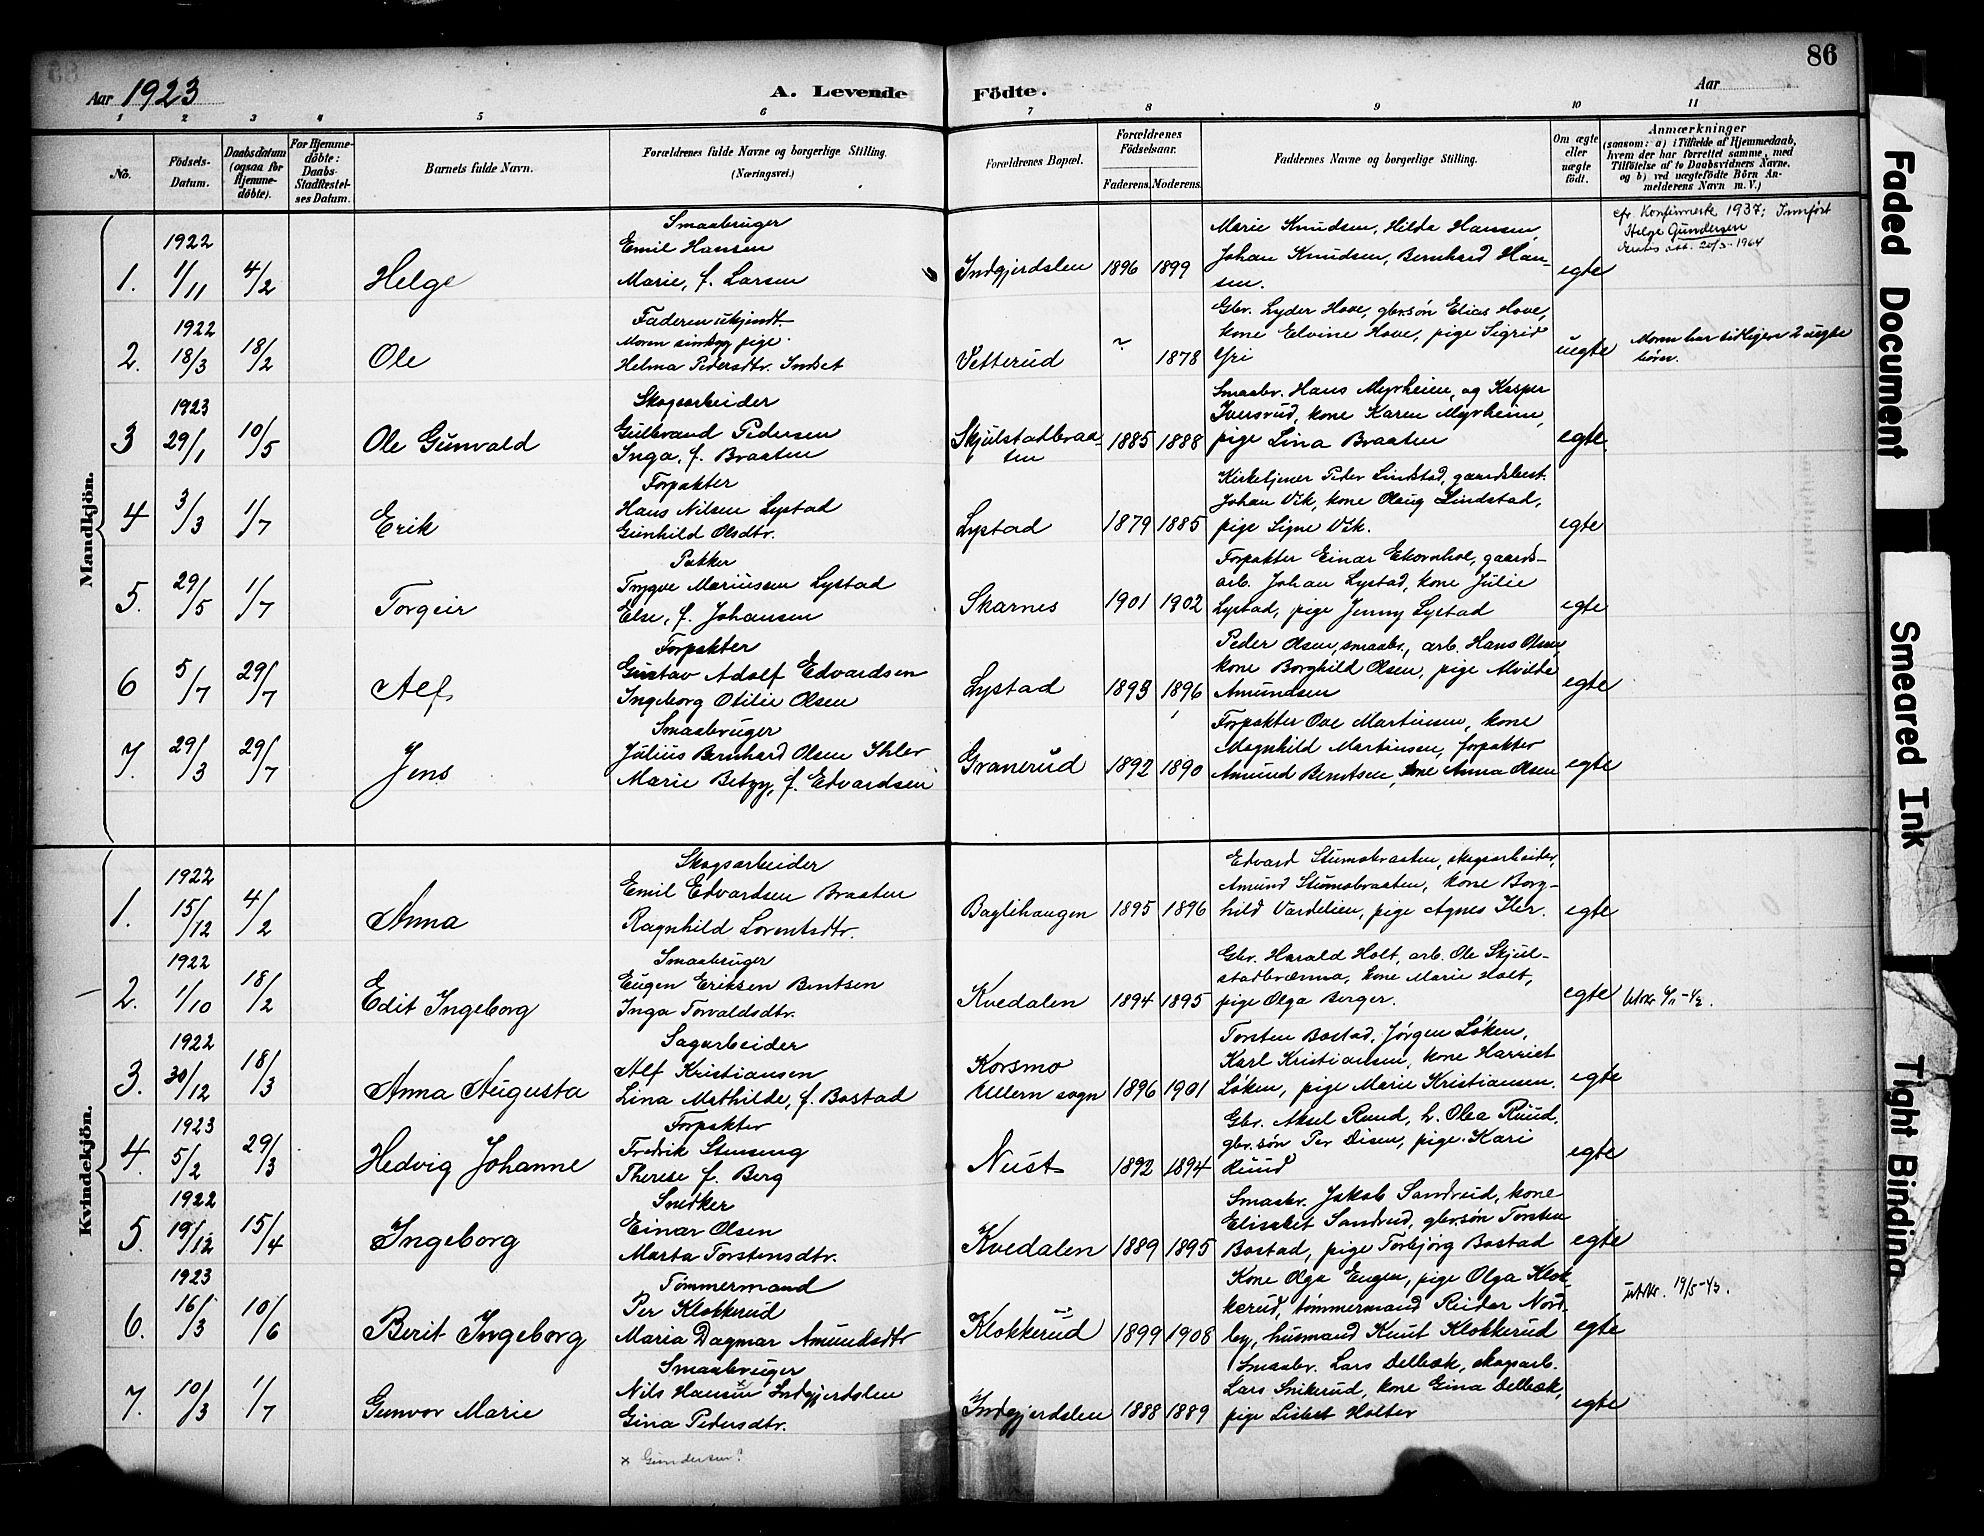 86
Aar 1923
A. Levende Födte.
Aar
1 2 3 4 5 6 7 8 9 10 11
No.
Födsels-Datum.
Daabsdatum (ogsaa for Hjemme-döbte).
For Hjemme-döbte: Daabs-Stadfæstel-ses Datum.
Barnets fulde Navn.
Forældrenes fulde Navne og borgerlige Stilling. (Næringsvei.)
Forældrenes Bopæl.
Forældrenes Födselsaar.
Faderens. Moderens.
Faddernes Navne og borgerlige Stilling.
Om ægte eller uægte födt.
Anmærkninger
(saasom: a) i Tilfælde af Hjemmedaab,
hvem der har forrettet samme, med
Tilföielse af to Daabsvidners Navne,
og b) ved uægtefödte Börn An-
melderens Navn m. V.)
Mandkjön.
1922
1. 1/11 4/2 Helge
Smaabruger
Emil Hansen
Marie, f. Larsen
Indgjerdslen 1896 1899
Marie Knudsen, Hilda Hansen,
Johan Knudsen, Bernhard Han-
sen.
egte
cfr. Konfirmerte 1937; Innført
Helge Gundersen
20/3-1964
1922
2. 18/3 18/2 Ole
Faderen ukjendt.
Moren sindssyg pige.
Helma Pedersdtr. Indset
Vetterud ~ 1878
Gbr. Lyder Hove, gbrsøn Elias Hove,
kone Elvine Hove, pige Sigrid
Yri
uegte
Moren har tidligere 2 uegte
børn.
1923
3 29/1 10/5 Ole Gunvald
Skogsarbeider
Gulbrand Pedersen
Inga, f. Braaten
Skjulstadbraa-
ten 1885 1888
Smaabr. Hans Myrheim, og Kasper
Iversrud, kone Karen Myrheim,
pige Lina Braaten
egte.
4 3/3 1/7 Erik
Forpakter
Hans Nilsen Lystad
Gunhild Olsdtr.
Lystad 1879 1885
Kirketjener Peder Lindstad, gaardsbest.
Johan Vik, kone Olaug Lindstad,
pige Signe Vik.
egte
5. 29/5 1/7 Torgeir
Pakker
Trygve Mariusen Lystad
Else, f. Johansen
Skarnes 1901 1902
Forpakter Einar Ekornhol, gaards-
arb. Johan Lystad, kone Julie
Lystad, pige Jenny Lystad
egte
6 5/7 29/7 Alf
Forpakter
Gustav Adolf Edvardsen
Ingeborg Otilie Olsen
Lystad 1893 1896
Peder Olsen, smaabr., arb. Hans Olsen,
kone Borghild Olsen, pige Alvilde
Amundsen
egte
7. 29/3 29/7 Jens
Smaabruger
Julius Bernhard Olsen Ihler
Marie Betzy, f. Edvardsen
Granerud 1892 1890
Forpakter Ove Martinsen, kone
Magnhild Martinsen, forpakter
Amund Berntsen, kone Anna Olsen
egte
Kvindekjön.
1922
1. 15/12 4/2 Anna
Skogsarbeider
Emil Edvardsen Braaten
Ragnhild Lorentsdtr.
Baglihaugen 1895 1896
Edvard Stumobraaten, skogsarbeider,
Amund Stumobraaten, kone Borg-
hild Vardelien, pige Agnes Iler.
egte
1922
2. 1/10 18/2 Edit Ingeborg
Smaabruger
Eugen Eriksen Berntsen
Inga Torvaldsdtr.
Kvedalen 1894 1895
Gbr. Harald Holt, arb. Ole Skjul-
stadbrænna, kone Marie Holt,
pige Olga Berger.
egte
1922
3. 30/12 18/3 Anna Augusta
Sagarbeider
Alf Kristiansen
Lina Mathilde, f. Bostad
Korsmo
Ullern sogn 1896 1901
Torsten Bostad, Jørgen Løken,
Karl Kristiansen, kone Harriet
Løken, pige Marie Kristiansen.
egte
1923
4. 5/2 29/3 Hedvig Johanne
Forpakter
Fredrik Stenseng
Therese f. Berg
Nust 1892 1894
Gbr. Aksel Ruud, h. Olea Ruud,
gbr. søn Per Disen, pige Kari
Ruud
egte
1922
5. 19/12 15/4 Ingeborg
Snedker
Einar Olsen
Marta Torstensdtr.
Kvedalen 1889 1895
Smaabr. Jakob Sandrud, kone
Elisabet Sandrud, gbrsøn Torsten
Bostad, pige Torbjörg Bostad
egte
1923
6. 16/3 10/6 Berit Ingeborg
Tømmermand
Per Klokkerud
Maria Dagmar Amundsdtr
Klokkerud 1899 1908
Kone Olga Eugen, pige Olga Klok-
kerud, tømmermand Reidar Nord-
by, husmand Knut Klokkerud
egte
utskr. 19/5-43.
7. 10/3 1/7 Gunvor Marie
Smaabruger
Nils Hansen x Indgjerdslen
Gina Pedersdtr.
Indgjerdslen 1888 1889
Smaabr. Lars Delbæk, skogsarb.
Lars Snikerud, kone Gina Delbæk,
pige Lisbet Holter
egte
x Gundersen?
Faded Document
Smeared Ink
Tight Binding